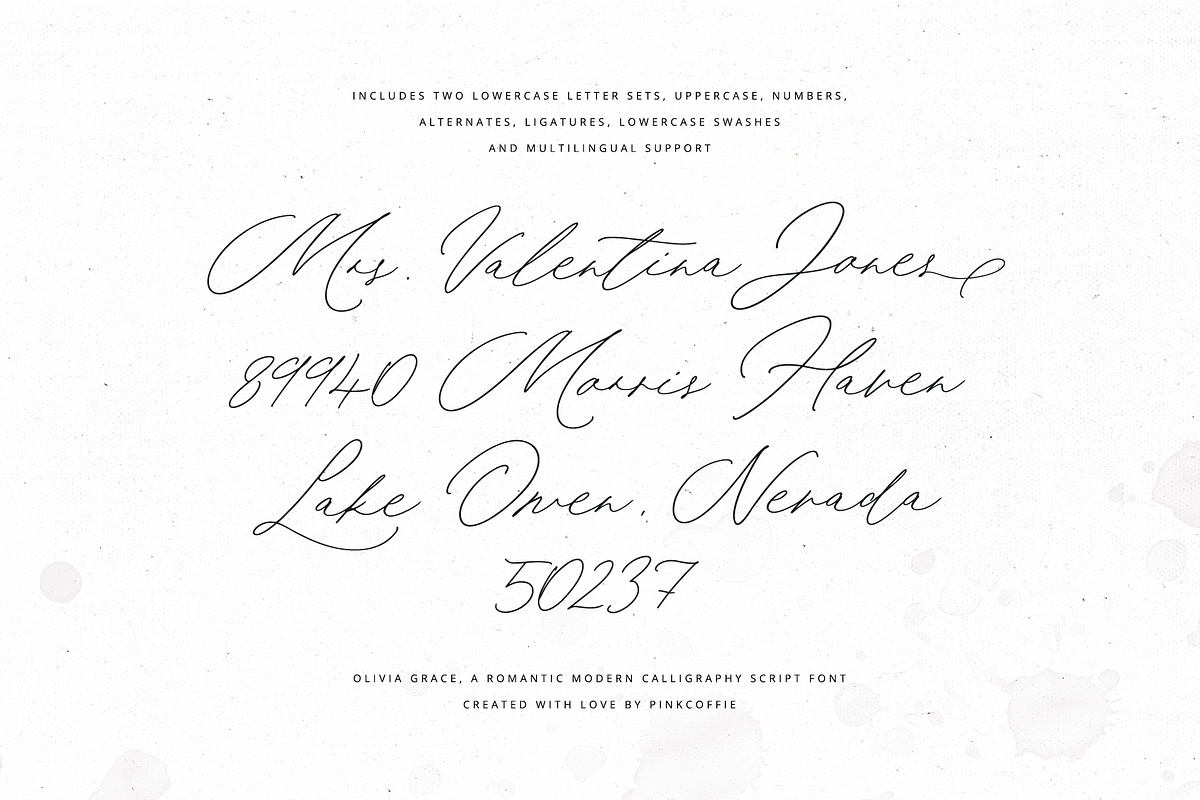 INCLUDES TWO LOWERCASE LETTER SETS, UPPERCASE, NUMBERS,
ALTERNATES, LIGATURES, LOWERCASE SWASHES
AND MULTILINGUAL SUPPORT
Mrs. Valentina Jones
89940 Morris Haven
Lake Owen, Nevada
50237
OLIVIA GRACE, A ROMANTIC MODERN CALLIGRAPHY SCRIPT FONT
CREATED WITH LOVE BY PINKCOFFIE